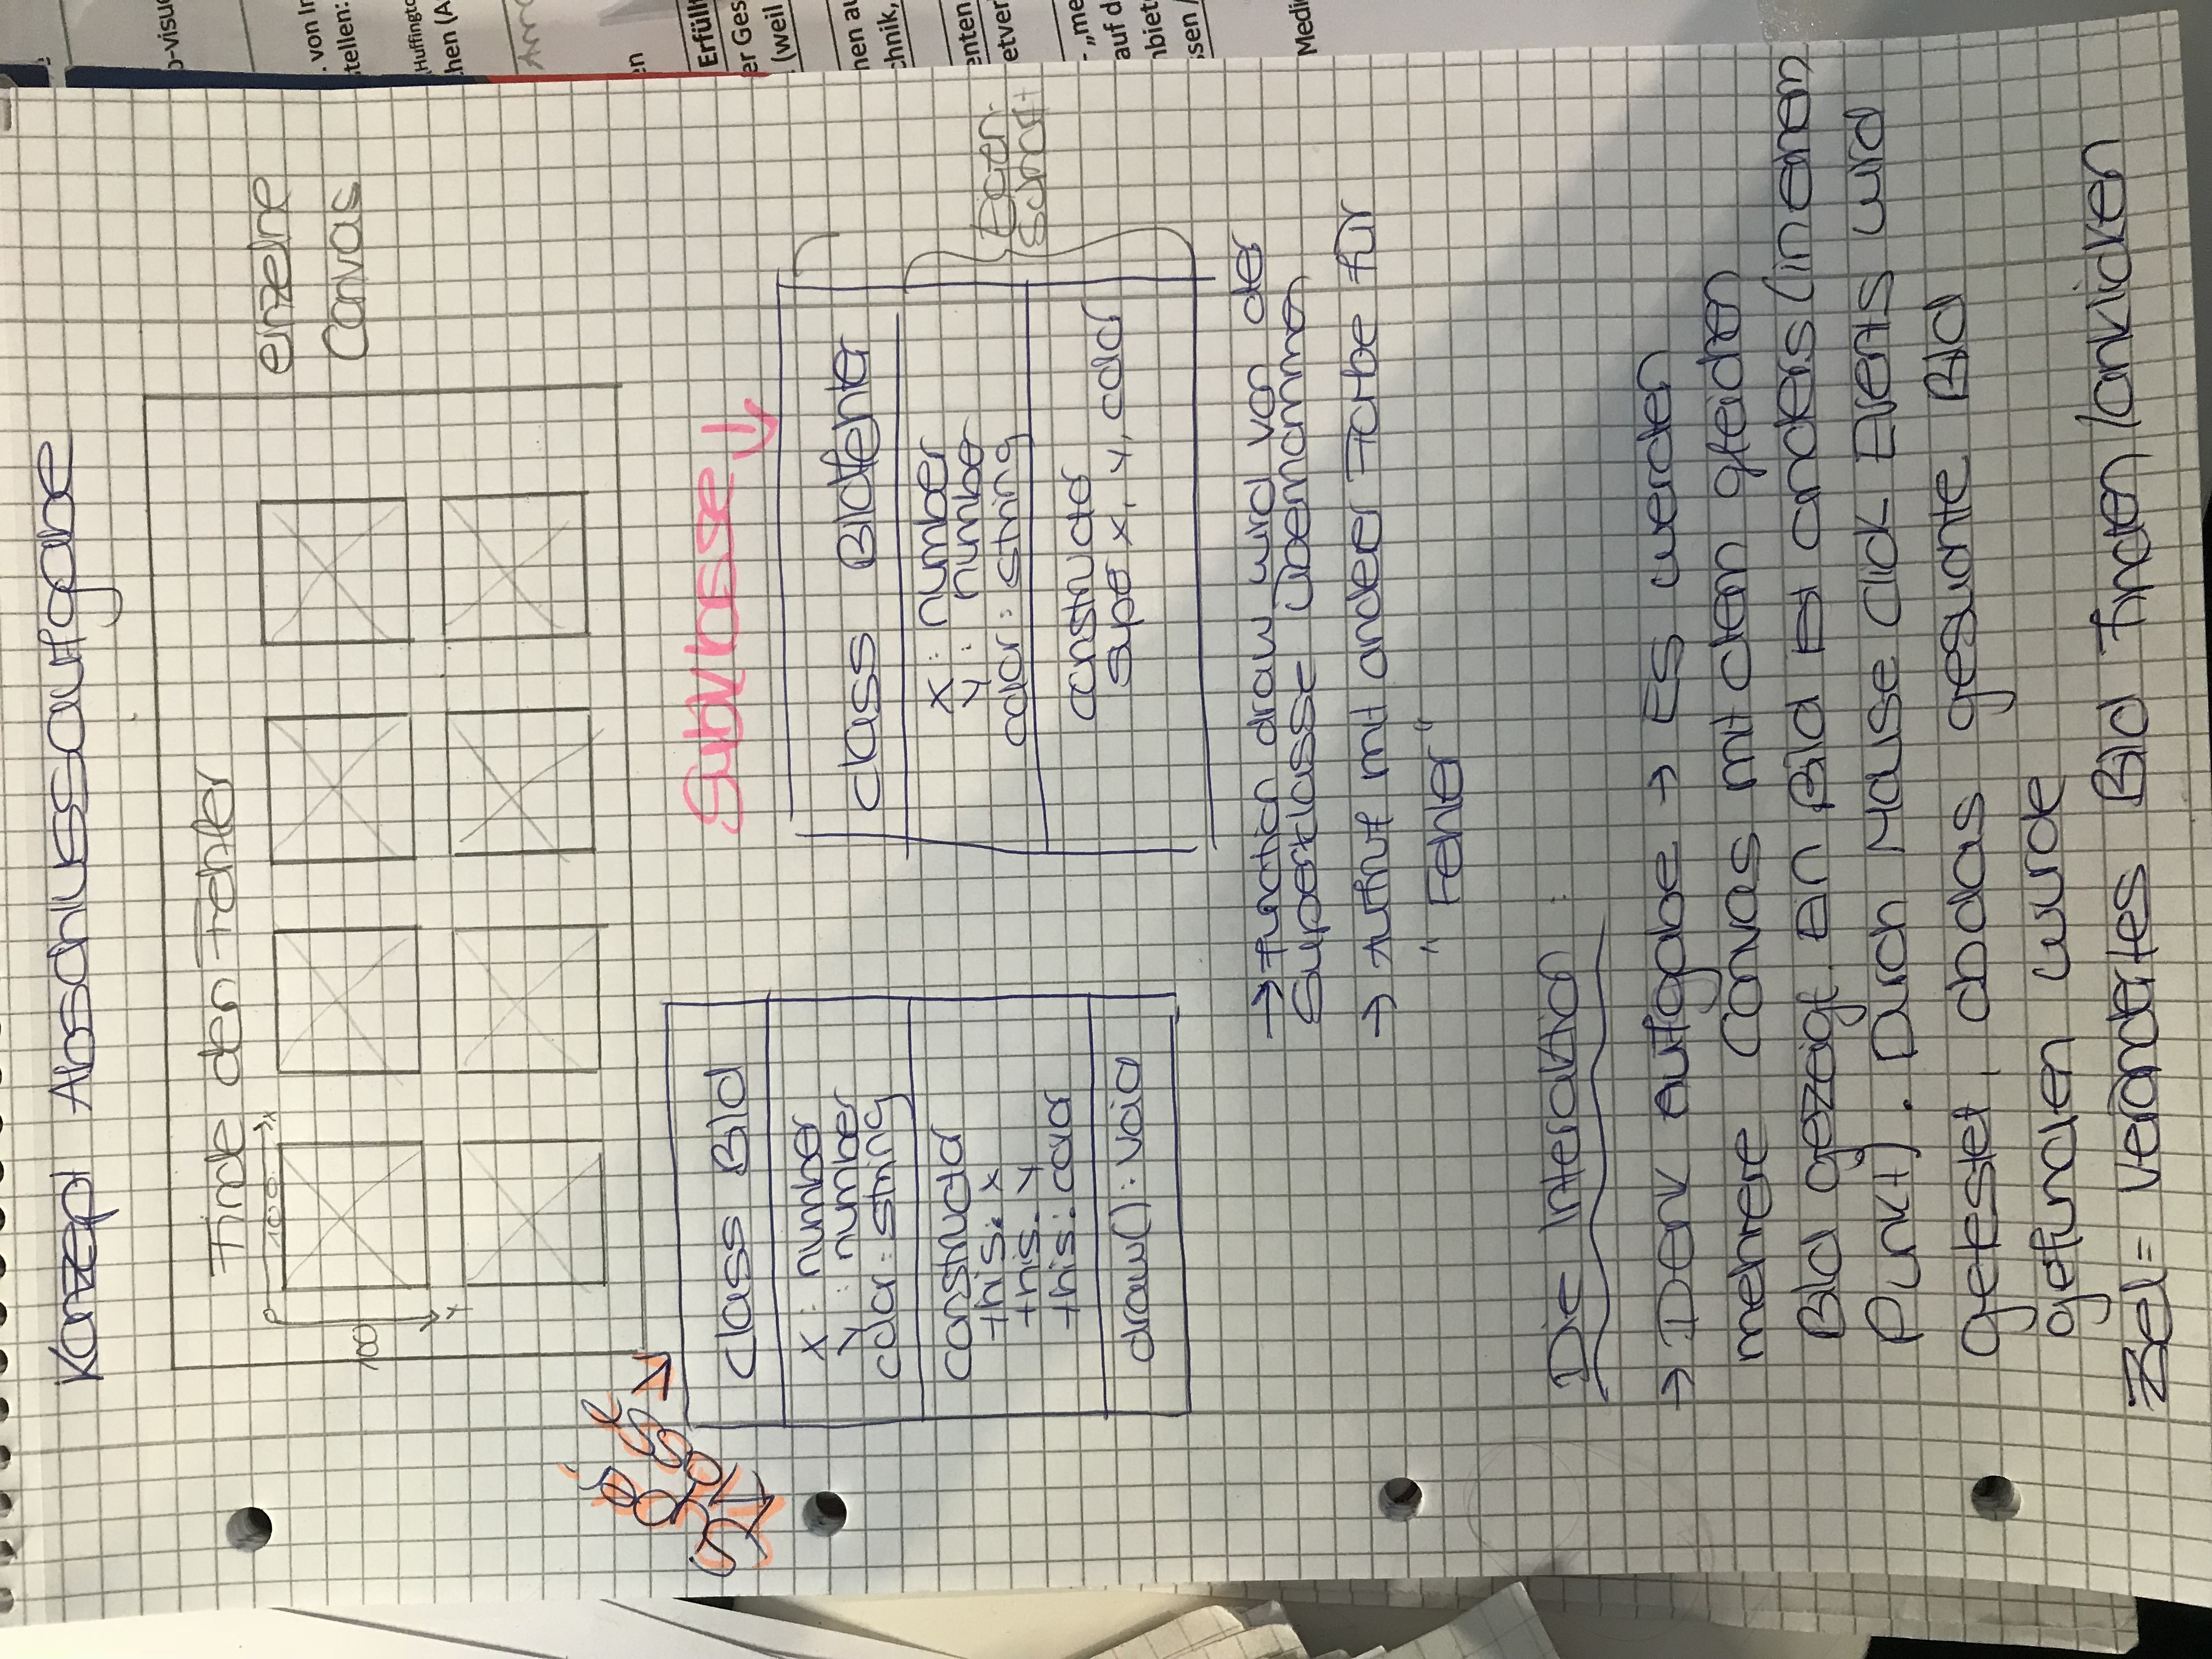 Konzept Abschlussaufgabe
Finde den Fehler
100 x
100
y
einzelne
Canvas
Super-
klasse
class Bild
x : number
y : number
color : string
constructor
this: x
this. y
this: color
draw() : void
Subklasse
class Bildfehler
x : number
y : number
color : string
constructor
super x, y, color
Eigen-
schaft
→ function draw wird von der
Superklasse übernommen
→ Aufruf mit anderer Farbe für
"Fehler"
Die Interaktion :
→ Denk Aufgabe → Es werden
mehrere Canvas mit dem gleichen
Bild gezeigt. Ein Bild ist anders (in einem
Punkt). Durch Mouse Click Events wird
getestet, ob das gesuchte Bild
gefunden wurde
Ziel = verändertes Bild finden/anklicken
o-visue
. von In
tellen:
Huffingto
hen (A
en
Erfüllt
er Ges
(weil
nen au
chnik,
enten
etver
- „me
auf d
nbiet
ssen /
Medi